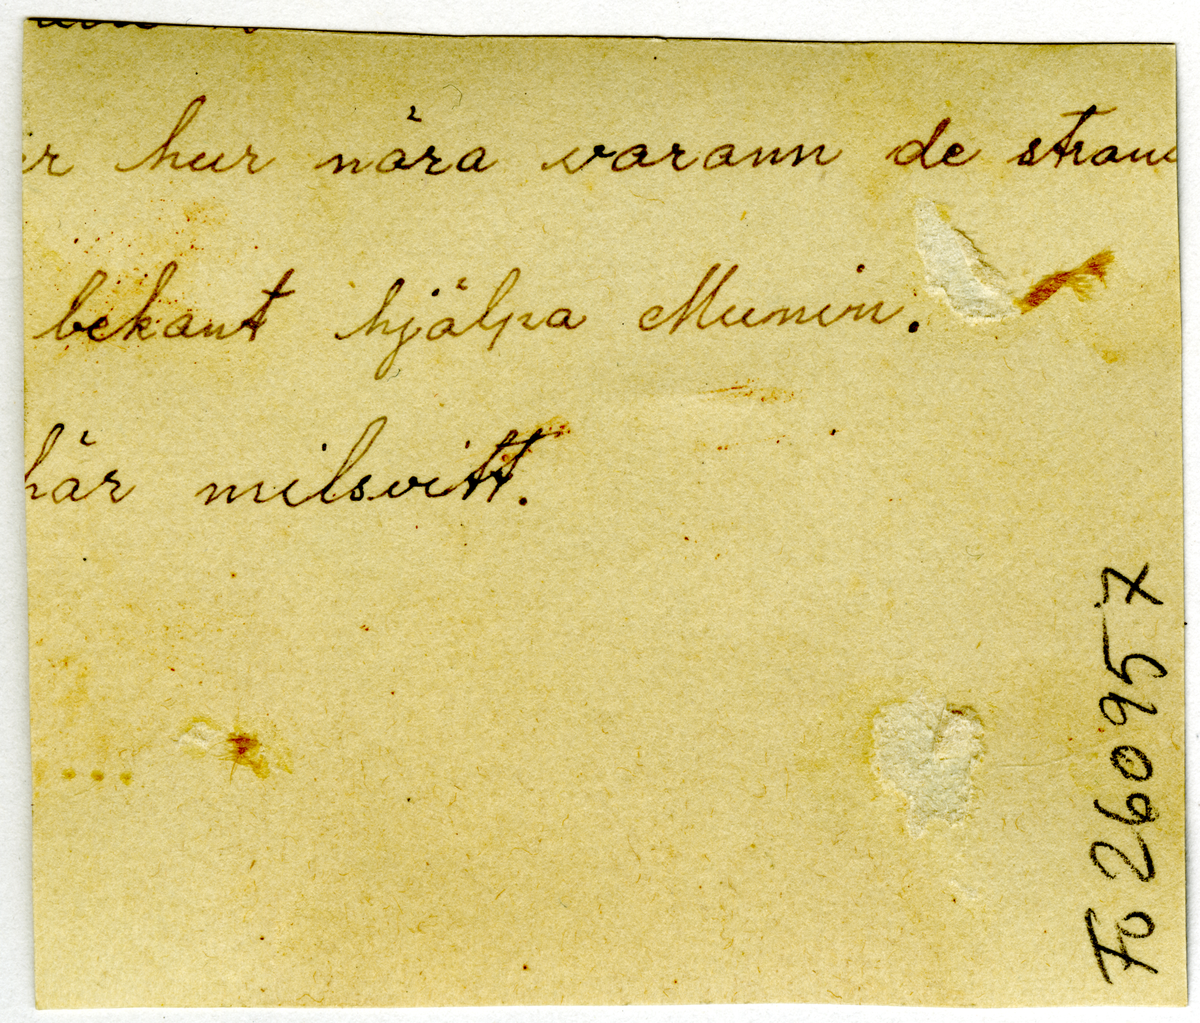 er hur nära varann de stran
bekant hjälpa Munin.
här milsvitt.
Fo 260957